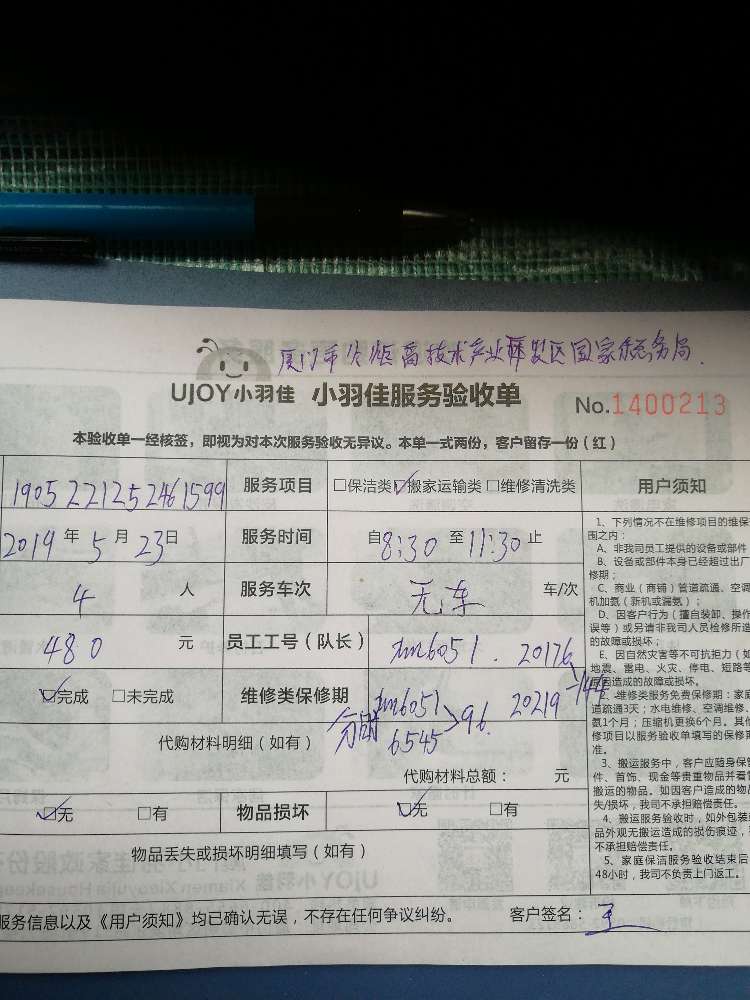 厦门市火炬高技术产业开发区国家税务局
UJOY小羽佳 小羽佳服务验收单 No.1400213
本验收单一经核签，即视为对本次服务验收无异议。本单一式两份，客户留存一份（红）
1905221252461599 服务项目 □保洁类 ☑搬家运输类 □维修清洗类 用户须知
2019年5月23日 服务时间 自8:30至11:30止
4 人 服务车次 无车 车/次
480 元 员工工号（队长） xm6051. 20176
☑完成 □未完成 维修类保修期 xm6051 6545 >96. 20219 -144
代购材料明细（如有）
代购材料总额： 元
☑无 □有 物品损坏 ☑无 □有
物品丢失或损坏明细填写（如有）
服务信息以及《用户须知》均已确认无误，不存在任何争议纠纷。 客户签名：
1、下列情况不在维修项目的维保
围之内：
A、非我司员工提供的设备或部件
B、设备或部件本身已经超过出厂
修期；
C、商业（商铺）管道疏通、空调
机加氨（新机或漏氨）；
D、因客户行为（擅自装卸、操作
误等）或另请非我司人员检修所造
的故障或损坏；
E、因自然灾害等不可抗拒力（如
地震、雷电、火灾、停电、短路等
原因造成的故障或损坏。
2、维修类服务免费保修期：家庭
道疏通3天；水电维修、空调维修、
氨1个月；压缩机更换6个月。其他
修项目以服务验收单填写的保修期
准。
3、搬运服务中，客户应随身保管
件、首饰、现金等贵重物品并看管
搬运的物品。如因客户造成的物品
失/损坏，我司不承担赔偿责任。
4、搬运服务验收时，如外包装或
品外观无搬运造成的损伤痕迹，
不承担赔偿责任。
5、家庭保洁服务验收结束后
48小时，我司不负责上门返工。